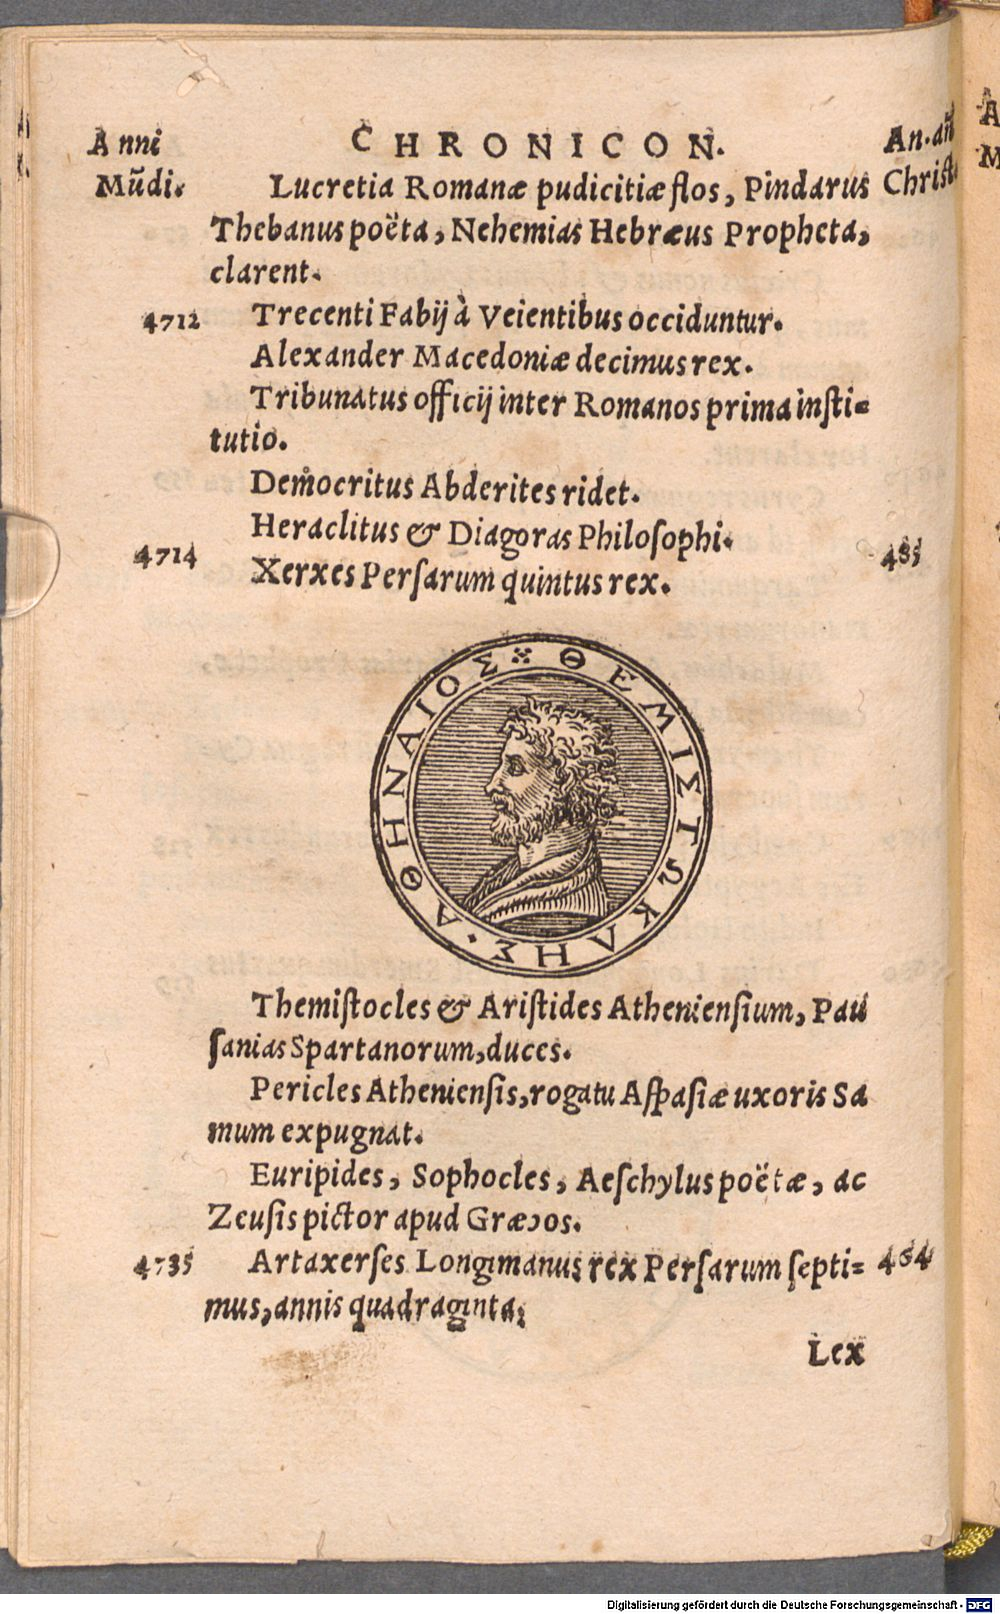 Anni
CHRONICON.
An. añ
Mũdi.
Christ.
Lucretia Romanæ pudicitiæ flos, Pindarus
Thebanus poëta, Nehemias Hebræus Propheta,
clarent.
4712 Trecenti Fabij à Veientibus occiduntur.
Alexander Macedoniæ decimus rex.
Tribunatus officij inter Romanos prima insti=
tutio.
Democritus Abderites ridet.
Heraclitus & Diagoras Philosophi.
4714 Xerxes Persarum quintus rex. 485
ΘΕΜΙΣΤΩΚΛΗΣ · ΑΘΗΝΑΙΟΣ
Themistocles & Aristides Atheniensium, Pau
sanias Spartanorum, duces.
Pericles Atheniensis, rogatu Aspasiæ uxoris Sa
mum expugnat.
Euripides, Sophocles, Aeschylus poëtæ, ac
Zeusis pictor apud Græcos.
4735 Artaxerses Longimanus rex Persarum septi= 464
mus, annis quadraginta.
Lex
Digitalisierung gefördert durch die Deutsche Forschungsgemeinschaft - DFG